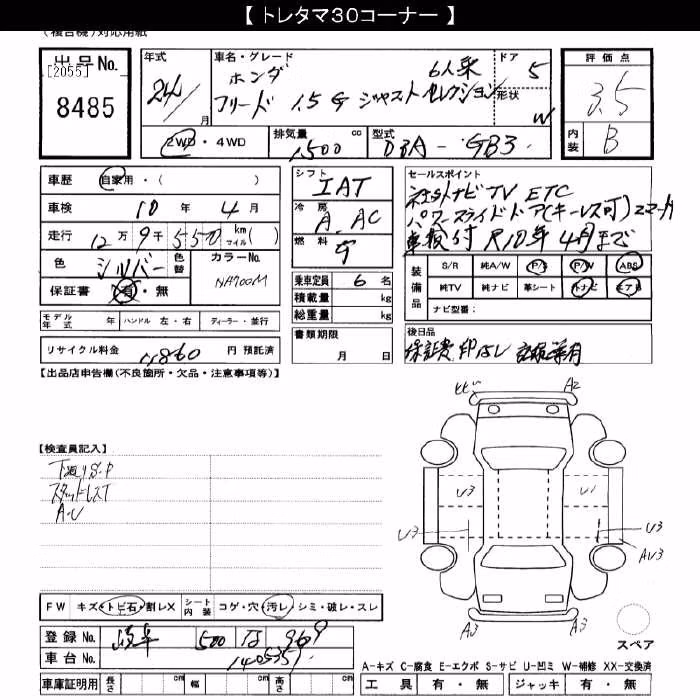 【 トレタマ30コーナー 】
(複合機)対応用紙
出品No.
[2055]
8485
年式
24/
月
車名・グレード
ホンダ
6人乗
フリード 1.5 G ジャストセレクション
ドア
5
形状
W
評価点
3.5
内装
B
2WD・4WD
排気量
cc
1500
型式
DBA - GB3
車歴
自家用・( )
車検
10年 4月
走行
12万 9千 550 km マイル ( )
色
シルバー
色替
カラーNo.
NH700M
保証書
有・無
モデル年式
年
ハンドル 左・右
ディーラー・並行
リサイクル料金
円 預託済
シフト
IAT
冷房
A.AC
燃料
乗車定員 6 名
積載量 kg
総重量 kg
書類期限
月 日
セールスポイント
ナビ TV ETC
パワースライドドア(キーレス可)
車検付 R10年4月まで
装備品
S/R
純A/W
P/S
P/W
ABS
純TV
純ナビ
革シート
外ナビ
エアB
ナビ型番:
後日品
【出品店申告欄(不良箇所・欠品・注意事項等)】
【検査員記入】
下廻りS.P
スタッドレスT
A.U
A2
U3
U1
U3
U3
AU3
A3
A3
スペア
FW
キズ・トビ石・割レX
シート内装
コゲ・穴・汚レ・シミ・破レ・スレ
登録No.
岐阜 500
969
車台No.
1405357
A-キズ C-腐食 E-エクボ S-サビ U-凹ミ W-補修 XX-交換済
車庫証明用
長さ cm
幅 cm
高さ cm
工具 有・無
ジャッキ 有・無